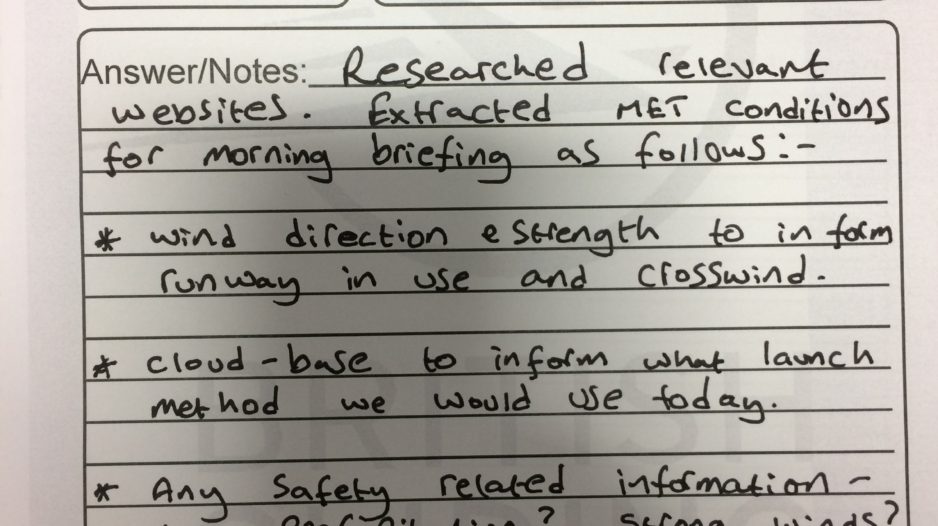 Answer/Notes: Researched relevant
websites. Extracted MET conditions
for morning briefing as follows:-
* wind direction & strength to inform
runway in use and crosswind.
* cloud-base to inform what launch
method we would use today.
* Any safety related information -
strong winds?
BRITISH